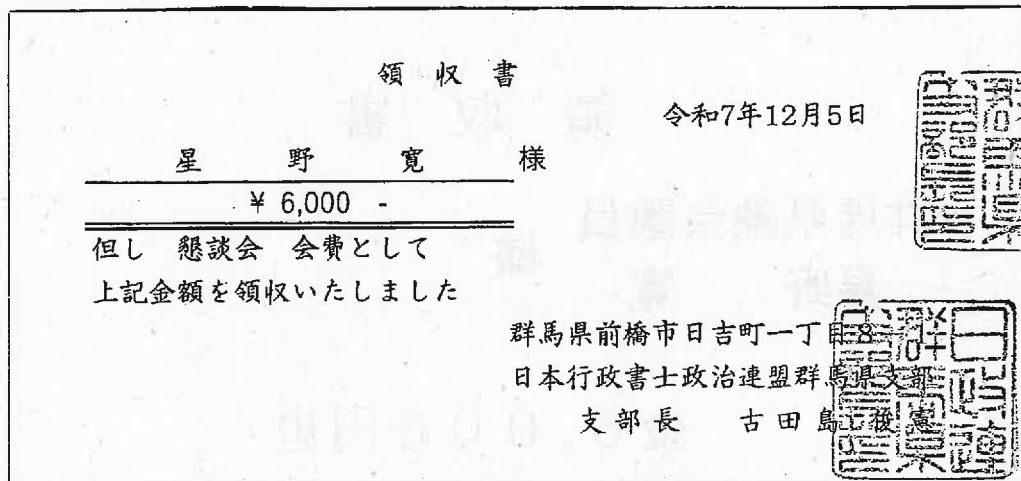 領 収 書
令和7年12月5日
星 野 寛 様
¥ 6,000 -
但し 懇談会 会費として
上記金額を領収いたしました
群馬県前橋市日吉町一丁目8-1
日本行政書士政治連盟群馬県支部
支部長 古田島 俊憲